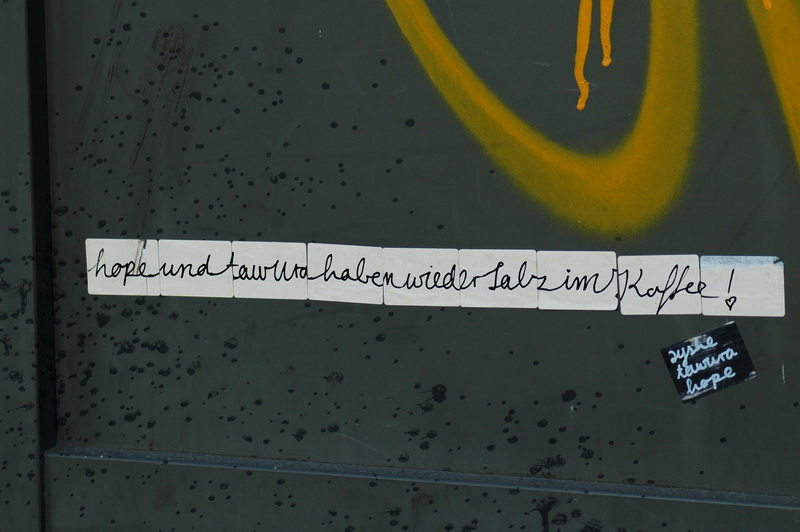 hope und tawura haben wieder Salz im Kaffee!
ayshe
tawura
hope